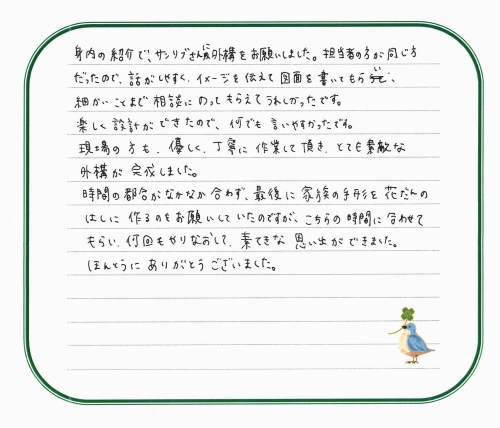 身内の紹介で、サンリブさんに外構をお願いしました。担当者の方が同じ方
だったので、話がしやすく、イメージを伝えて図面を書いてもらい、
細かいことまで相談にのってもらえてうれしかったです。
楽しく設計ができたので、何でも言いやすかったです。
現場の方も、優しく、丁寧に作業して頂き、とても素敵な
外構が完成しました。
時間の都合がなかなか合わず、最後に家族の手形を花だんの
はしに作るのをお願いしていたのですが、こちらの時間に合わせて
もらい、何回もやりなおして、素てきな思い出ができました。
ほんとうにありがとうございました。